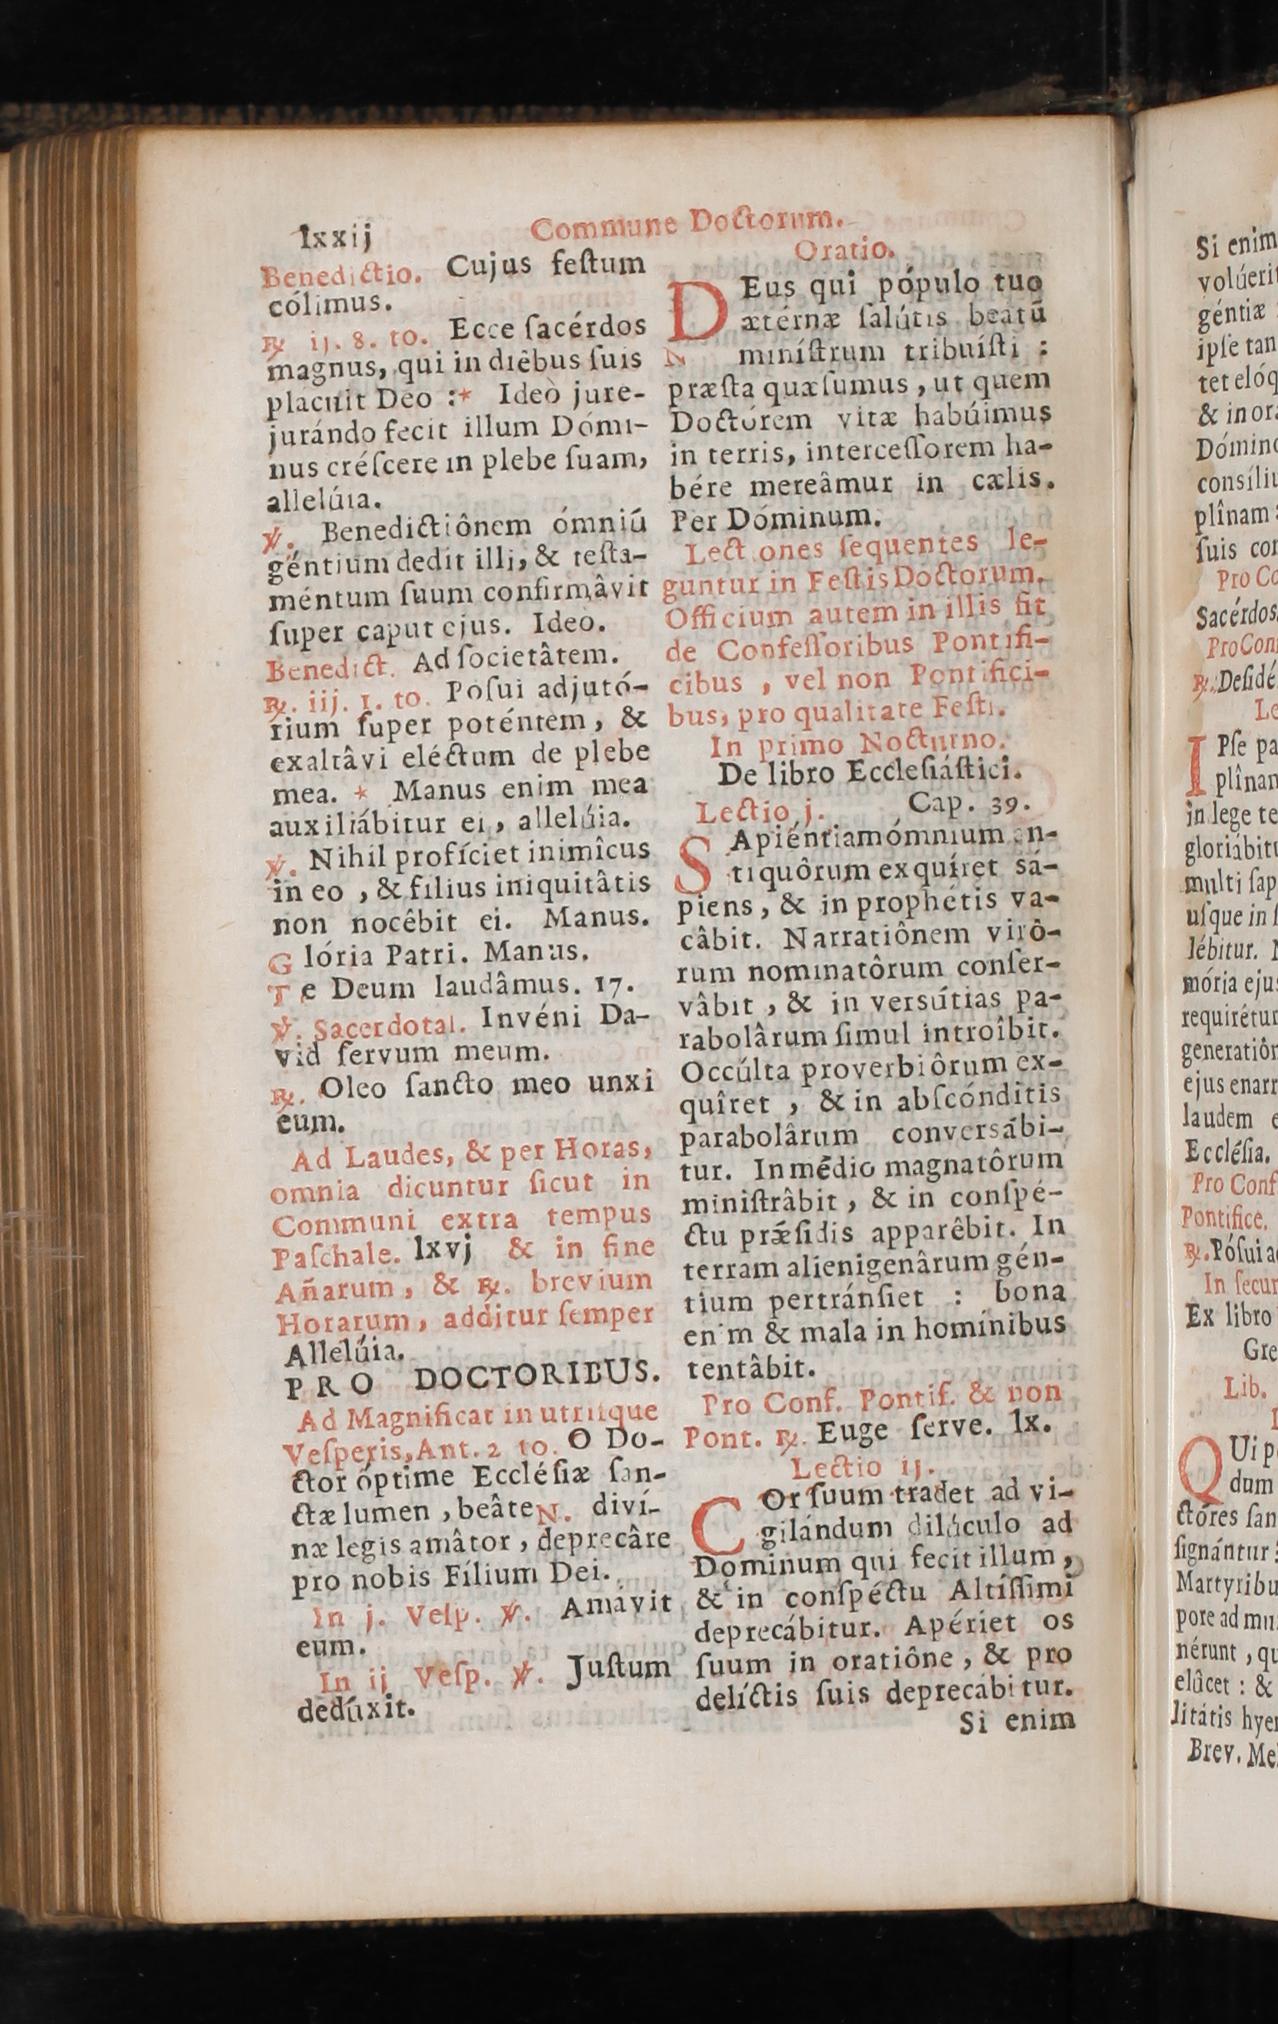 lxxij
Commune Doctorum.
Benedictio. Cujus feſtum
cólimus.
℟ ij. 8. to. Ecce ſacérdos
magnus, qui in diêbus ſuis
placuit Deo :* Ideò jure-
jurándo fecit illum Dómi-
nus créſcere in plebe ſuam,
allelúia.
℣. Benedictiônem ómniū
géntium dedit illi, & teſta-
méntum ſuum confirmâvit
ſuper caput ejus. Ideo.
Benedict. Ad ſocietâtem.
℟. iij. 1. to. Poſui adjutó-
rium ſuper poténtem, &
exaltâvi eléctum de plebe
mea. * Manus enim mea
auxiliábitur ei, allelúia.
℣. Nihil profíciet inimîcus
in eo , & filius iniquitâtis
non nocêbit ei. Manus.
Glória Patri. Manus.
Te Deum laudâmus. 17.
℣. Sacerdotal. Invéni Da-
vid ſervum meum.
℟. Oleo ſancto meo unxi
eum.
Ad Laudes, & per Horas,
omnia dicuntur ſicut in
Communi extra tempus
Paſchale. lxvj & in fine
Añarum, & ℟. brevium
Horarum, additur ſemper
Allelúia.
PRO DOCTORIBUS.
Ad Magnificat in utriſque
Veſperis, Ant. 2 to. O Do-
ctor óptime Eccléſiæ ſan-
ctæ lumen , beâte N. diví-
næ legis amâtor , deprecâre
pro nobis Fílium Dei.
In j. Veſp. ℣. Amávit
eum.
In ij Veſp. ℣. Juſtum
dedúxit.
Oratio.
DEus qui pópulo tuo
ætérnæ ſalútis beatū
N miníſtrum tribuíſti :
præſta quæſumus , ut quem
Doctórem vitæ habúimus
in terris, interceſſorem ha-
bére mereâmur in cælis.
Per Dóminum.
Lectiones ſequentes le-
guntur in Feſtis Doctorum.
Officium autem in illis fit
de Confeſſoribus Pontifi-
cibus , vel non Pontifici-
bus, pro qualitate Feſti.
In primo Nocturno.
De libro Eccleſiáſtici.
Lectio j. Cap. 39.
SApiéntiam ómnium an-
tiquôrum exquíret sá-
piens, & in prophétis va-
câbit. Narratiônem virô-
rum nominatôrum conſer-
vâbit , & in versútias pa-
rabolârum ſimul introîbit.
Occúlta proverbiôrum ex-
quîret , & in abſcónditis
parabolârum conversábi-
tur. In médio magnatôrum
miniſtrâbit , & in conſpé-
ctu præ̂ſidis apparêbit. In
terram alienigenârum gén-
tium pertránſiet : bona
enim & mala in homínibus
tentâbit.
Pro Conf. Pontif. & non
Pont. ℟. Euge ſerve. lx.
Lectio ij.
COr ſuum tradet ad vi-
gilándum dilúculo ad
Dominum qui fecit illum,
& in conſpéctu Altíſſimi
deprecábitur. Apériet os
ſuum in oratiône , & pro
delíctis ſuis deprecábitur.
Si enim
Si enim
volúerit
géntiæ
ipſe tan
tet elóq
& in ora
Dómino
consíliu
plînam
ſuis con
Pro Co
Sacérdos
Pro Con
℟. Deſidé
Le
IPſe pa
plînan
in lege te
gloriábitu
multi ſap
uſque in ſ
lébitur. N
mória ejus
requirétur
generatiôn
ejus enarr
laudem e
Eccléſia.
Pro Conf
Pontifice.
℟. Póſui ad
In ſecun
Ex libro
Gre
Lib.
QUi p
dum
ctóres ſan
ſignántur :
Martyribu
pore ad mu
nérunt , qu
elûcet : &
litátis hyem
Brev. Me